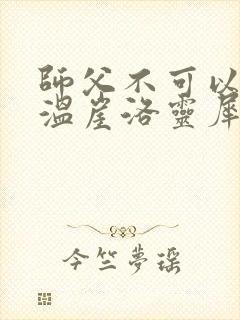 師父不可以
溫崖洛靈犀
今竺夢瑤